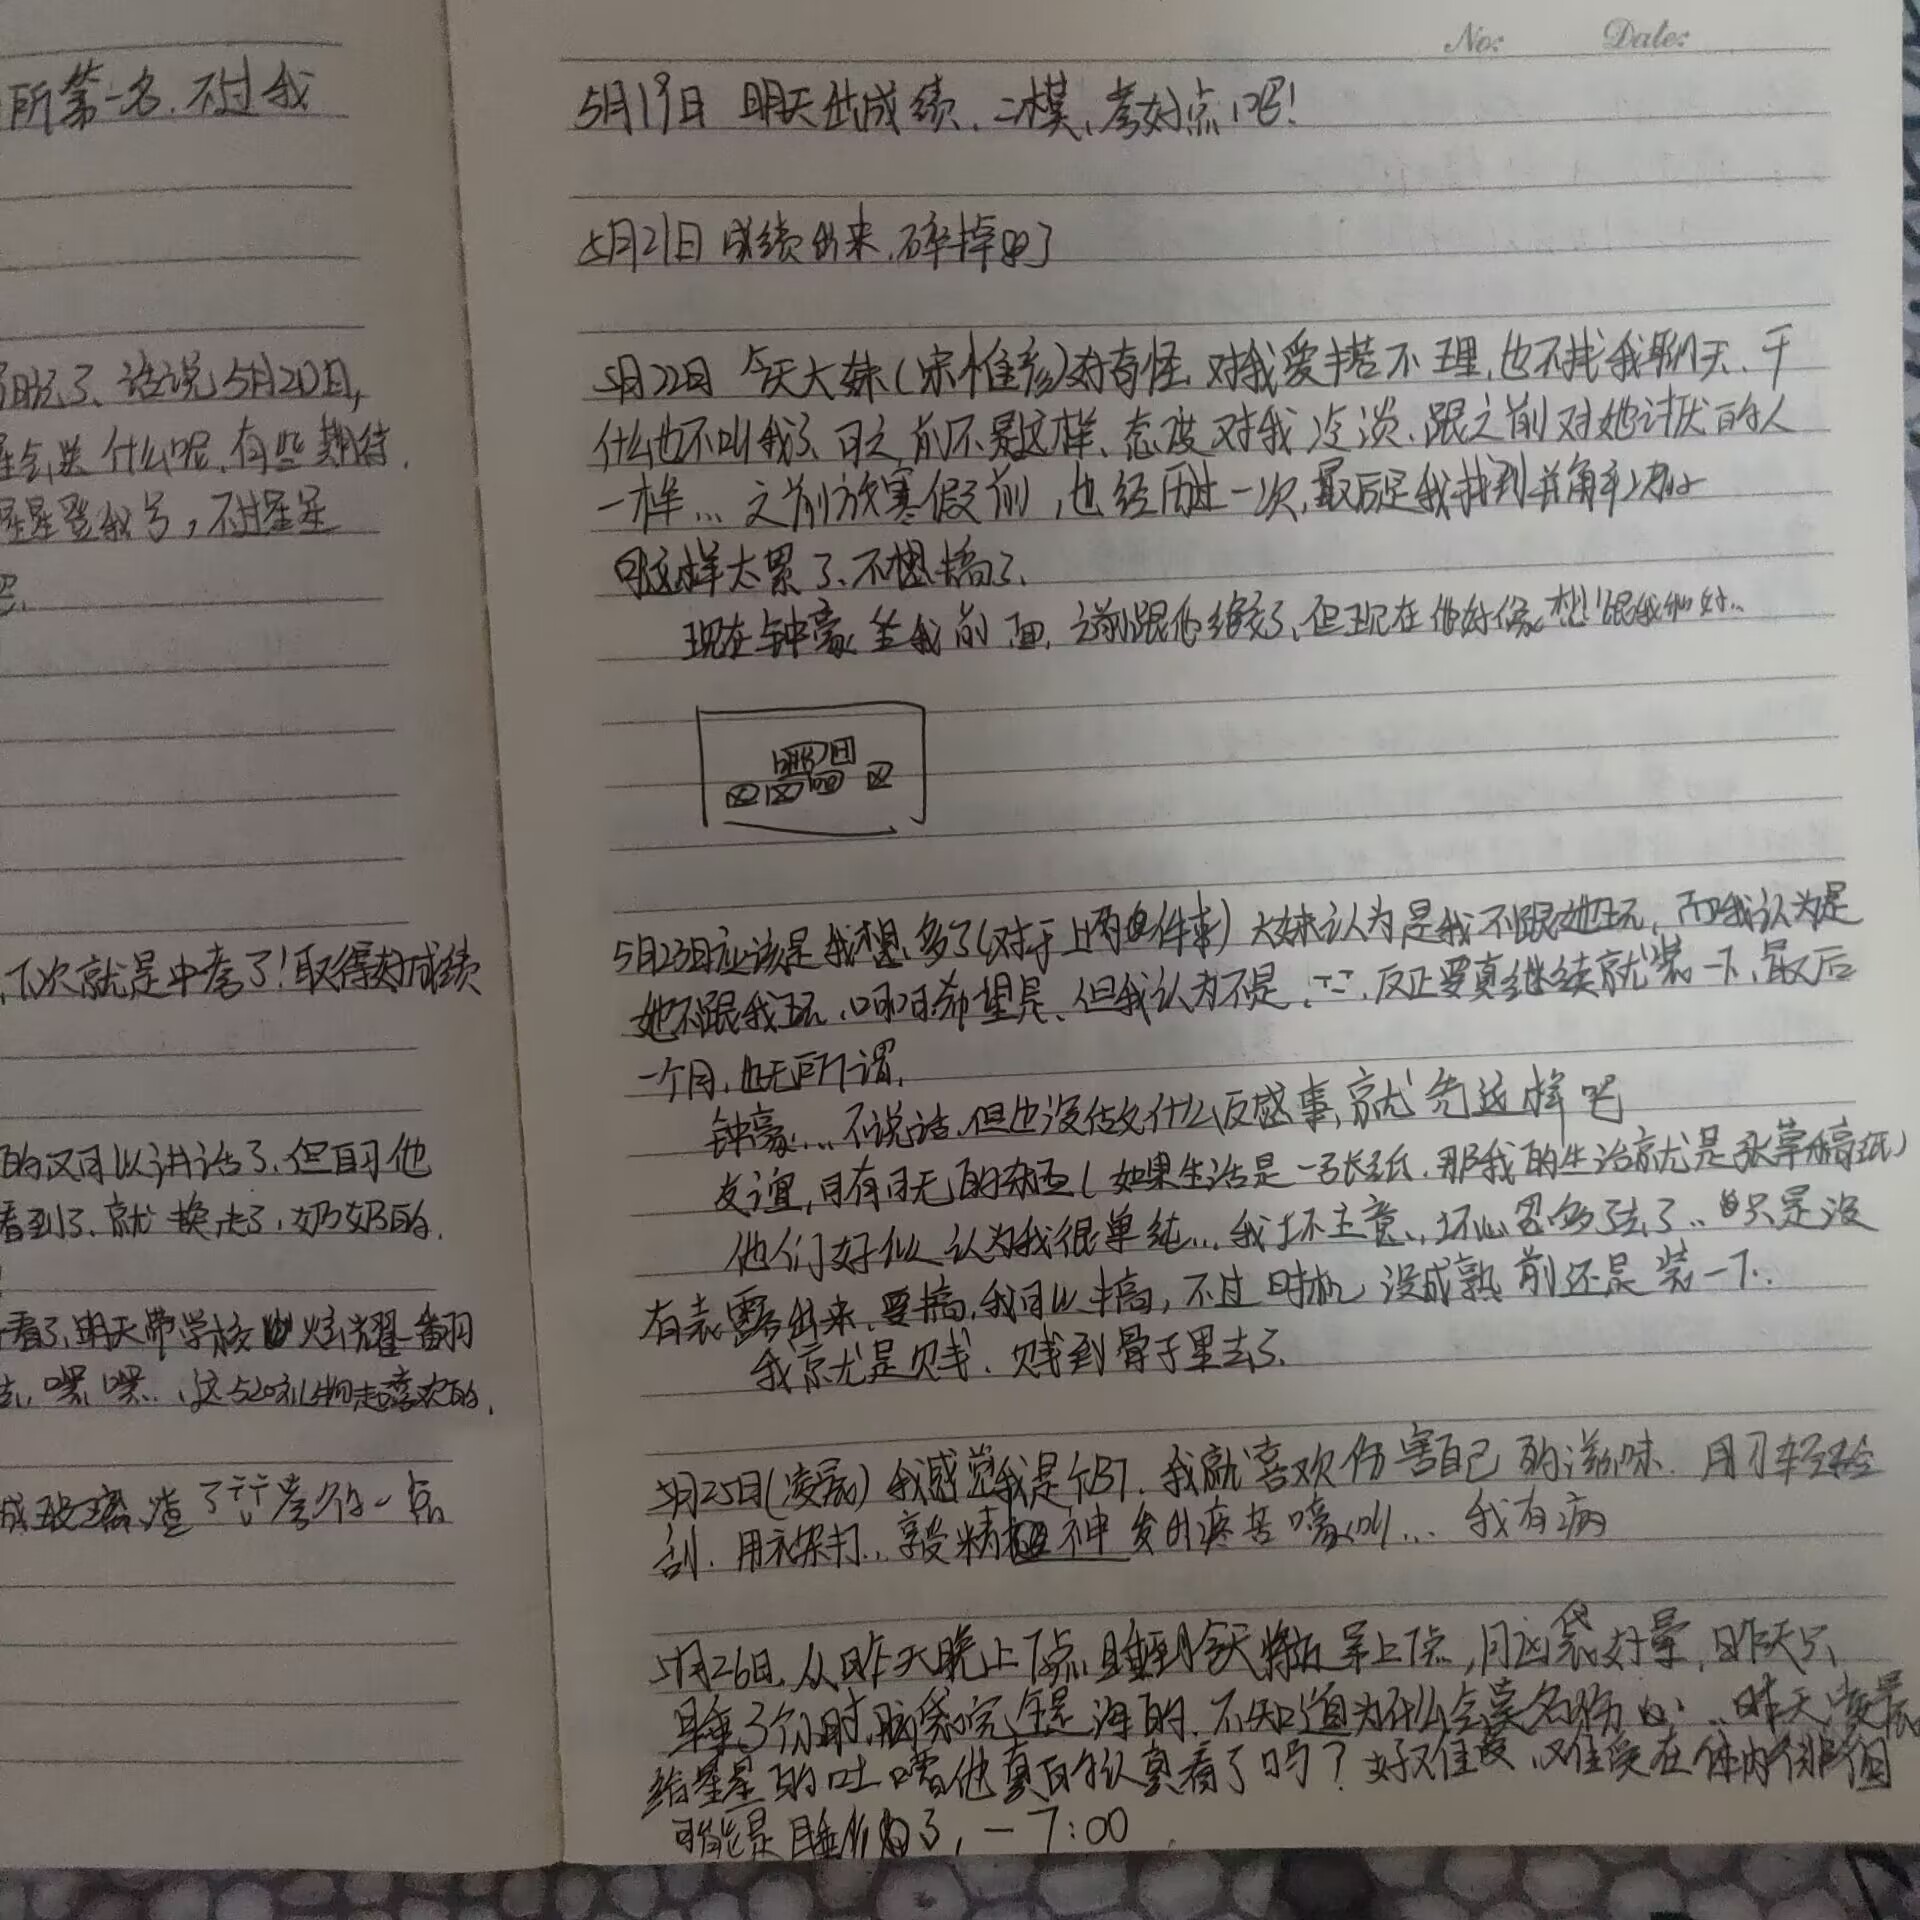 所第一名.不过我
了.话说5月20日,
会送什么呢.有些期待.
星星登我号,不过星星
.下次就是中考了!取得好成绩
的又可以讲话了.但自习他
看到了.就换走了,奶奶的.
看了,明天带学校炫耀翻
嘿嘿..这520礼物超喜欢的.
成玻璃渣了 考久一点
No: Date:
5月19日 明天出成绩.二模,考好点吧!
5月21日 成绩出来,碎掉了
5月22日 今天大妹(宋惟彦)好奇怪.对我爱搭不理,也不找我聊天、干
什么也不叫我了.可之前不是这样、态度对我冷淡.跟之前对她讨厌的人
一样... 之前放寒假前,也经历过一次,最后是我找到并解决
可这样太累了、不想搞了.
现在钟豪坐我前面.之前跟他绝交了、但现在他好像想跟我和好...
5月23日应该是我想多了(对于上两件事) 大妹认为是我不跟她玩,而我认为是
她不跟我玩,哪可希望是、但我认为不是.反正要真继续就装一下,最后
一个月,也无所谓,
钟豪....不说话.但也没做什么反感事,就先这样吧
友谊,可有可无的东西(如果生活是一张纸.那我的生活就是张草稿纸)
他们好似认为我很单纯... 我坏主意、坏心思多了去了..只是没
有表露出来.要搞,我可以搞,不过时机没成熟前还是装一下.
我就是贱.贱到骨子里去了.
5月25日(凌晨) 我感觉我是个BT.我就喜欢伤害自己的滋味.用刀轻轻
刮.用衣架打..享受精神发出疼苦嚎叫... 我有病
5月26日.从昨天晚上7点睡到今天早上7点,脑袋好晕,昨天只
睡了个小时,脑袋完全是混的.不知道为什么会莫名伤心...昨天凌晨
给星星的吐嘈他真的认真看了吗?好难受,难受在体内徘徊
可能是睡了,—7:00